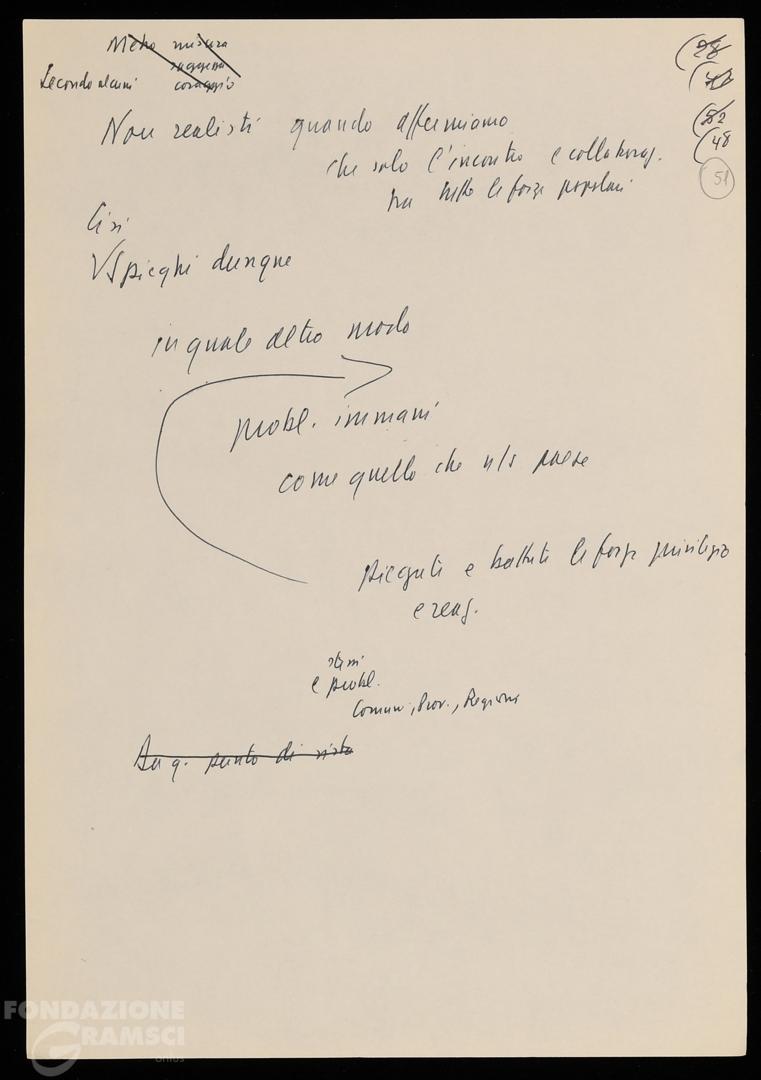 Metro misura
saggezza
coraggio
Secondo alcuni
(28
(47
(52
(48
51
Non realisti quando affermiamo
che solo l'incontro e collaboraz.
tra tutte le forze popolari
Ci si
V Spieghi dunque
in quale altro modo
probl. immani
come quello che n/s paese
piegate e battute le forze privilegio
e reaz.
stessi
e probl.
Comuni, Prov., Regioni
Da q. punto di vista
FONDAZIONE
GRAMSCI
onlus